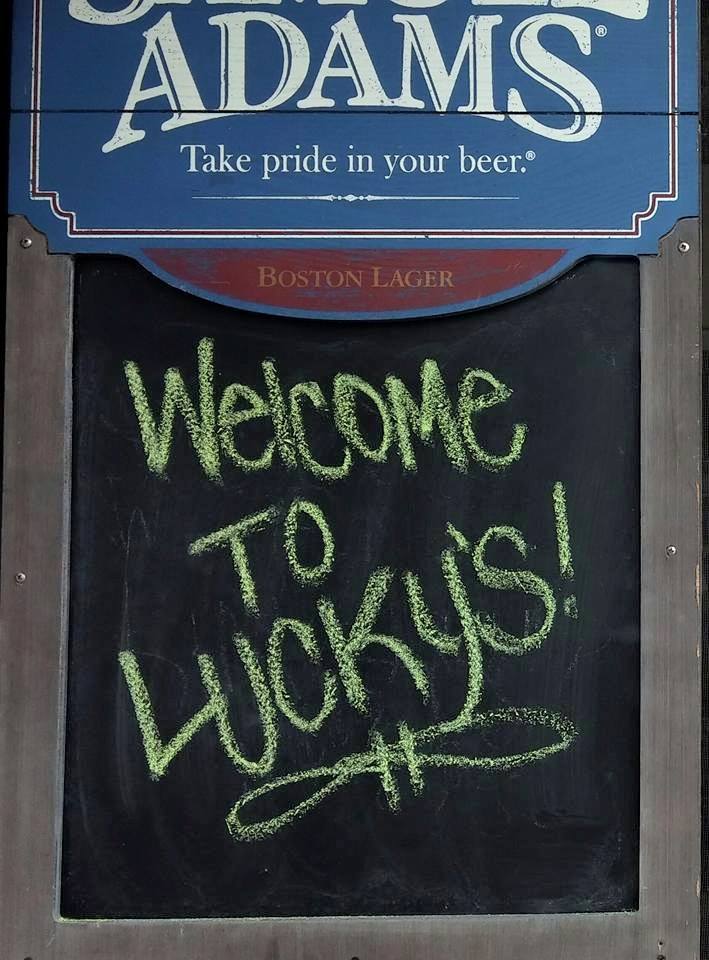 SAMUEL
ADAMS®
Take pride in your beer.®
BOSTON LAGER
Welcome
To
Lucky's!